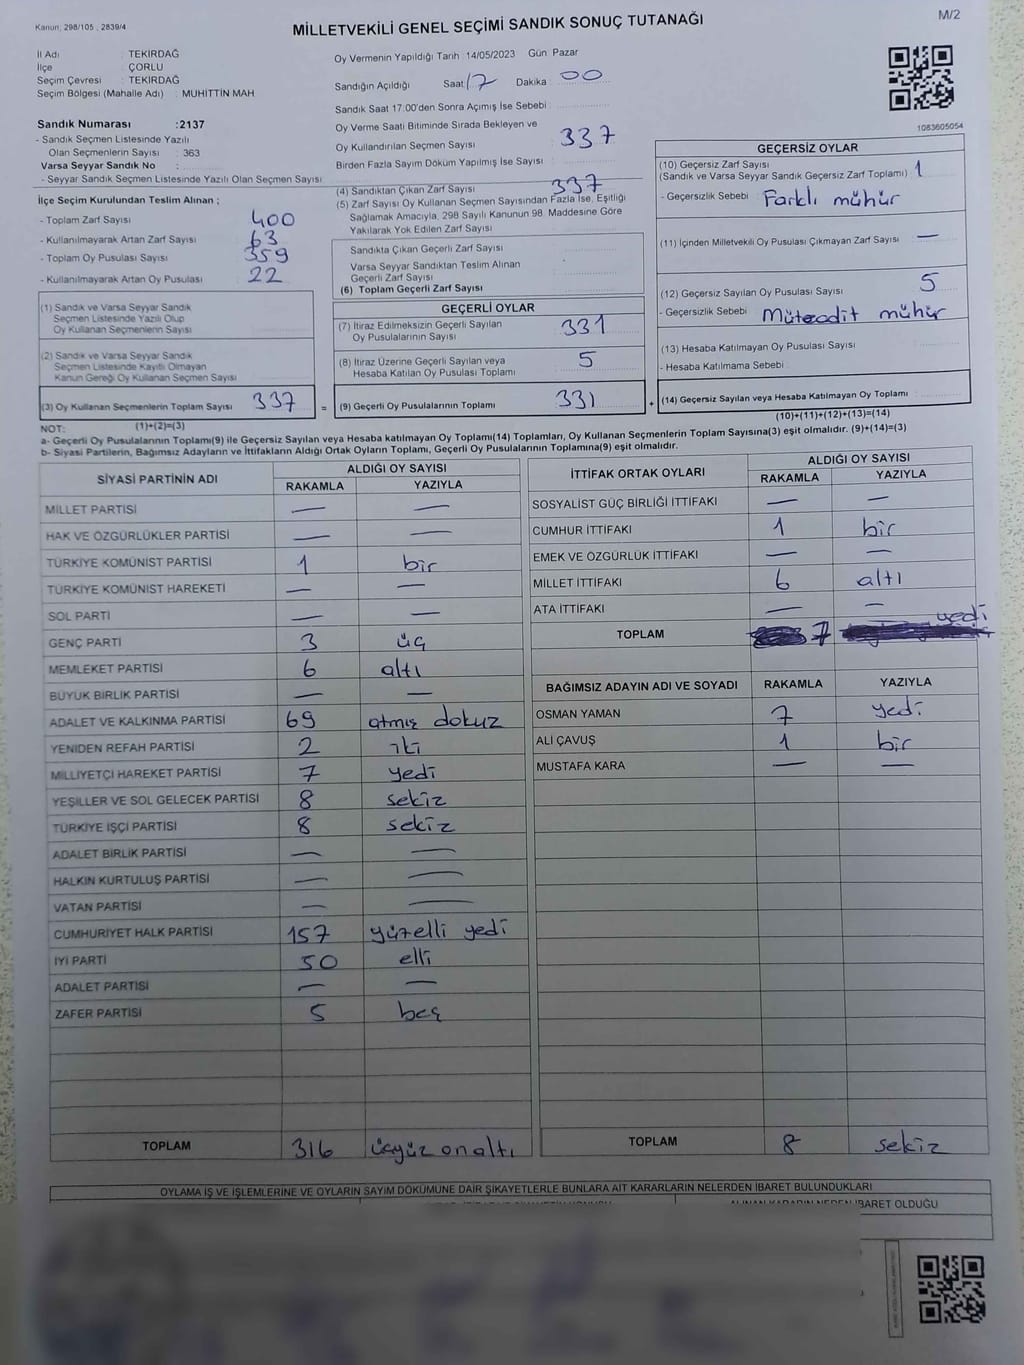 Kanun: 298/105 ; 2839/4
MİLLETVEKİLİ GENEL SEÇİMİ SANDIK SONUÇ TUTANAĞI
M/2
İl Adı : TEKİRDAĞ
İlçe : ÇORLU
Seçim Çevresi : TEKİRDAĞ
Seçim Bölgesi (Mahalle Adı) : MUHİTTİN MAH
Sandık Numarası :2137
- Sandık Seçmen Listesinde Yazılı
Olan Seçmenlerin Sayısı : 363
Varsa Seyyar Sandık No :
- Seyyar Sandık Seçmen Listesinde Yazılı Olan Seçmen Sayısı :
İlçe Seçim Kurulundan Teslim Alınan ;
- Toplam Zarf Sayısı 400
- Kullanılmayarak Artan Zarf Sayısı 63
- Toplam Oy Pusulası Sayısı 359
- Kullanılmayarak Artan Oy Pusulası : 22
(1) Sandık ve Varsa Seyyar Sandık
Seçmen Listesinde Yazılı Olup
Oy Kullanan Seçmenlerin Sayısı
(2) Sandık ve Varsa Seyyar Sandık
Seçmen Listesinde Kayıtlı Olmayan
Kanun Gereği Oy Kullanan Seçmen Sayısı
(3) Oy Kullanan Seçmenlerin Toplam Sayısı 337
(1)+(2)=(3)
Oy Vermenin Yapıldığı Tarih : 14/05/2023 Gün: Pazar
Sandığın Açıldığı Saat 17 Dakika : 00
Sandık Saat 17:00'den Sonra Açımış İse Sebebi :
Oy Verme Saati Bitiminde Sırada Bekleyen ve
Oy Kullandırılan Seçmen Sayısı : 337
Birden Fazla Sayım Döküm Yapılmış İse Sayısı :
(4) Sandıktan Çıkan Zarf Sayısı 337
(5) Zarf Sayısı Oy Kullanan Seçmen Sayısından Fazla İse, Eşitliği
Sağlamak Amacıyla, 298 Sayılı Kanunun 98. Maddesine Göre
Yakılarak Yok Edilen Zarf Sayısı :
Sandıkta Çıkan Geçerli Zarf Sayısı
Varsa Seyyar Sandıktan Teslim Alınan
Geçerli Zarf Sayısı
(6) Toplam Geçerli Zarf Sayısı
GEÇERLİ OYLAR
(7) İtiraz Edilmeksizin Geçerli Sayılan
Oy Pusulalarının Sayısı 331
(8) İtiraz Üzerine Geçerli Sayılan veya
Hesaba Katılan Oy Pusulası Toplamı 5
= (9) Geçerli Oy Pusulalarının Toplamı 331
1083605054
GEÇERSİZ OYLAR
(10) Geçersiz Zarf Sayısı :
(Sandık ve Varsa Seyyar Sandık Geçersiz Zarf Toplamı) 1
- Geçersizlik Sebebi : Farklı mühür
(11) İçinden Milletvekili Oy Pusulası Çıkmayan Zarf Sayısı : —
(12) Geçersiz Sayılan Oy Pusulası Sayısı : 5
- Geçersizlik Sebebi : Müteadit mühür
(13) Hesaba Katılmayan Oy Pusulası Sayısı :
- Hesaba Katılmama Sebebi :
+ (14) Geçersiz Sayılan veya Hesaba Katılmayan Oy Toplamı :
(10)+(11)+(12)+(13)=(14)
NOT:
a- Geçerli Oy Pusulalarının Toplamı(9) ile Geçersiz Sayılan veya Hesaba katılmayan Oy Toplamı(14) Toplamları, Oy Kullanan Seçmenlerin Toplam Sayısına(3) eşit olmalıdır. (9)+(14)=(3)
b- Siyasi Partilerin, Bağımsız Adayların ve İttifakların Aldığı Ortak Oyların Toplamı, Geçerli Oy Pusulalarının Toplamına(9) eşit olmalıdır.
SİYASİ PARTİNİN ADI ALDIĞI OY SAYISI
RAKAMLA YAZIYLA
MİLLET PARTİSİ — —
HAK VE ÖZGÜRLÜKLER PARTİSİ — —
TÜRKİYE KOMÜNİST PARTİSİ 1 bir
TÜRKİYE KOMÜNİST HAREKETİ — —
SOL PARTİ — —
GENÇ PARTİ 3 üç
MEMLEKET PARTİSİ 6 altı
BÜYÜK BİRLİK PARTİSİ — —
ADALET VE KALKINMA PARTİSİ 69 atmış dokuz
YENİDEN REFAH PARTİSİ 2 iki
MİLLİYETÇİ HAREKET PARTİSİ 7 yedi
YEŞİLLER VE SOL GELECEK PARTİSİ 8 sekiz
TÜRKİYE İŞÇİ PARTİSİ 8 sekiz
ADALET BİRLİK PARTİSİ — —
HALKIN KURTULUŞ PARTİSİ — —
VATAN PARTİSİ — —
CUMHURİYET HALK PARTİSİ 157 yüzelli yedi
İYİ PARTİ 50 elli
ADALET PARTİSİ — —
ZAFER PARTİSİ 5 beş
TOPLAM 316 üçyüz onaltı
İTTİFAK ORTAK OYLARI ALDIĞI OY SAYISI
RAKAMLA YAZIYLA
SOSYALİST GÜÇ BİRLİĞİ İTTİFAKI — —
CUMHUR İTTİFAKI 1 bir
EMEK VE ÖZGÜRLÜK İTTİFAKI — —
MİLLET İTTİFAKI 6 altı
ATA İTTİFAKI — —
TOPLAM 7 yedi
BAĞIMSIZ ADAYIN ADI VE SOYADI RAKAMLA YAZIYLA
OSMAN YAMAN 7 yedi
ALİ ÇAVUŞ 1 bir
MUSTAFA KARA — —
TOPLAM 8 sekiz
OYLAMA İŞ VE İŞLEMLERİNE VE OYLARIN SAYIM DÖKÜMÜNE DAİR ŞİKAYETLERLE BUNLARA AİT KARARLARIN NELERDEN İBARET BULUNDUKLARI
ALINAN KARARIN NEDEN İBARET OLDUĞU